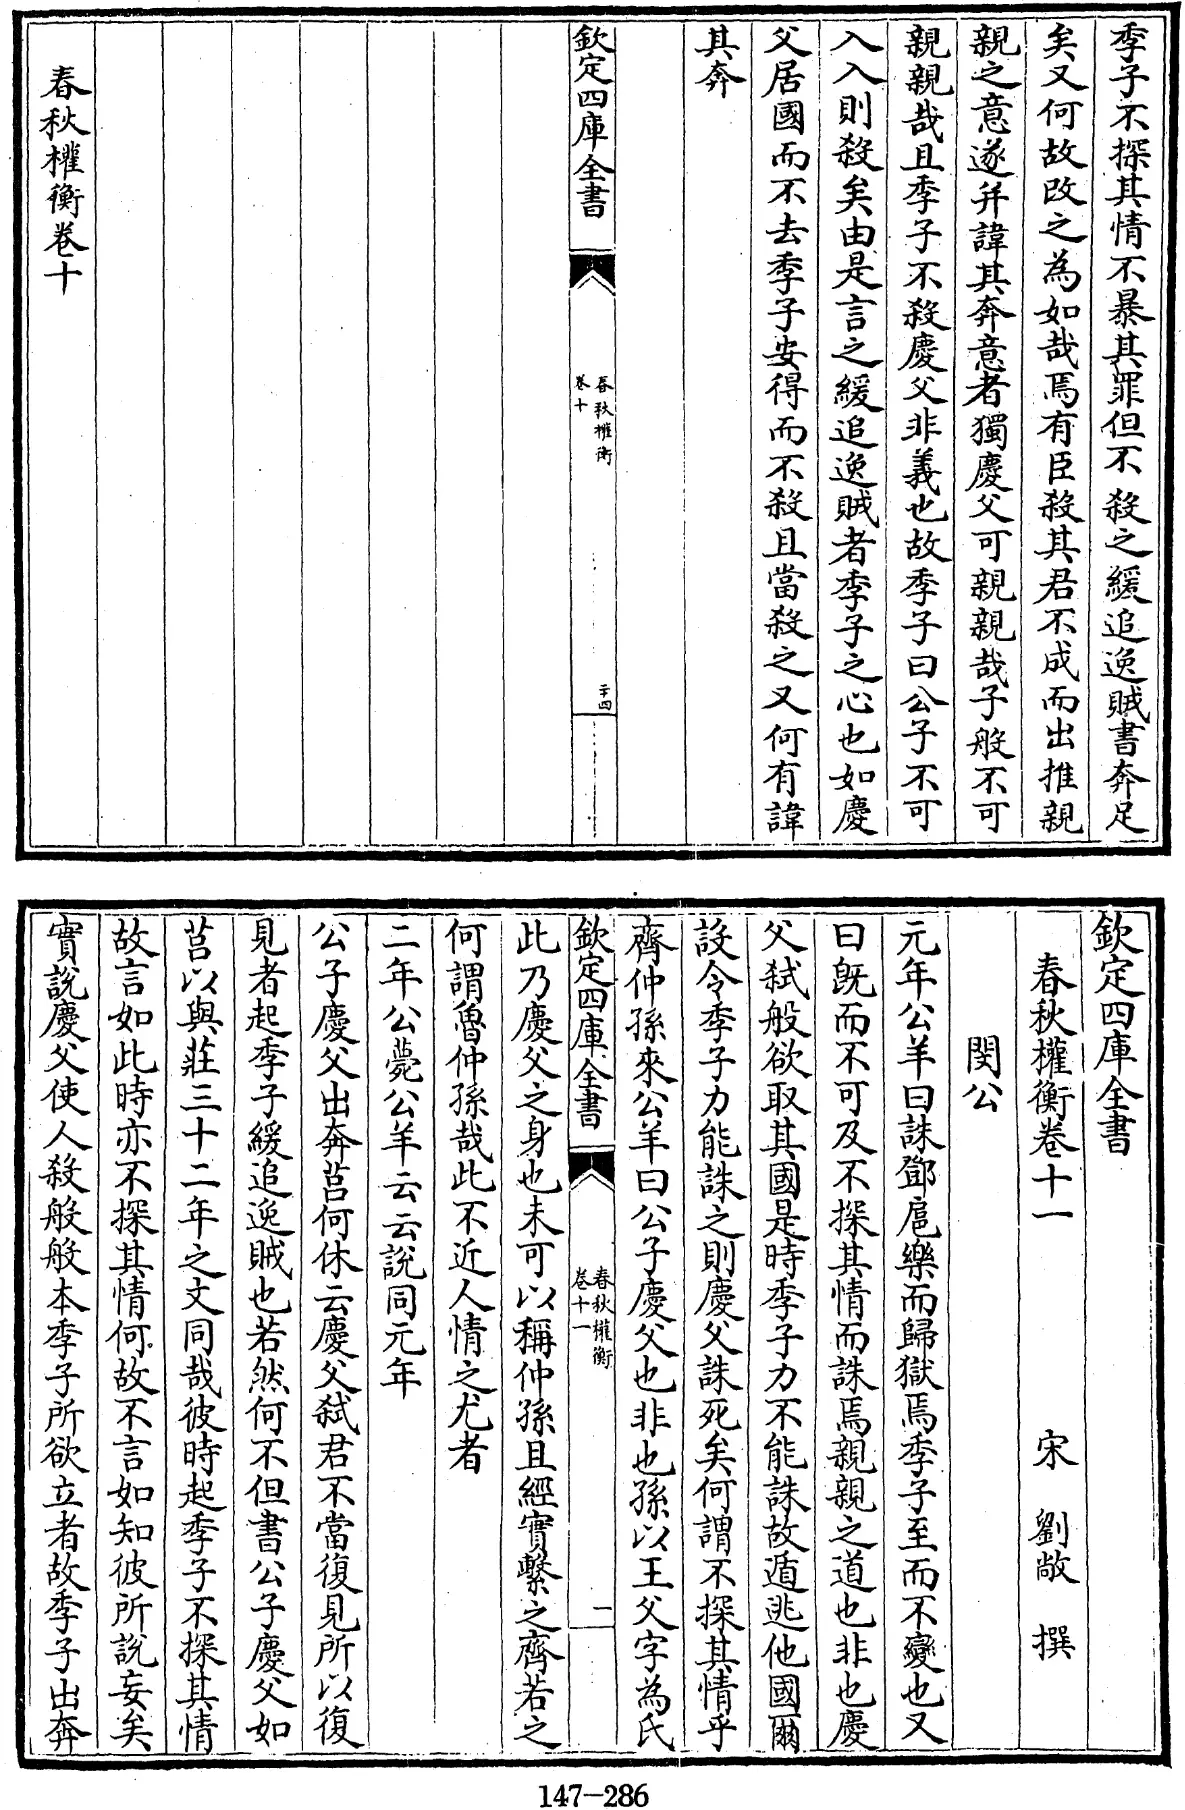 季子不探其情不暴其罪但不殺之緩追逸賊書奔足
矣又何故改之為如哉焉有臣殺其君不成而出推親
親之意遂并諱其奔意者獨慶父可親親哉子般不可
親親哉且季子不殺慶父非義也故季子曰公子不可
入入則殺矣由是言之緩追逸賊者季子之心也如慶
父居國而不去季子安得而不殺且當殺之又何有諱
其奔
欽定四庫全書
春秋權衡
卷十
二十四
春秋權衡卷十
欽定四庫全書
春秋權衡卷十一
宋 劉敞 撰
閔公
元年公羊曰誅鄧扈樂而歸獄焉季子至而不變也又
曰既而不可及不探其情而誅焉親親之道也非也慶
父弒般欲取其國是時季子力不能誅故遁逃他國爾
設令季子力能誅之則慶父誅死矣何謂不探其情乎
齊仲孫來公羊曰公子慶父也非也孫以王父字為氏
欽定四庫全書
春秋權衡
卷十一
一
此乃慶父之身也未可以稱仲孫且經實繫之齊若之
何謂魯仲孫哉此不近人情之尤者
二年公薨公羊云云說同元年
公子慶父出奔莒何休云慶父弒君不當復見所以復
見者起季子緩追逸賊也若然何不但書公子慶父如
莒以與莊三十二年之文同哉彼時起季子不探其情
故言如此時亦不探其情何故不言如知彼所說妄矣
實說慶父使人殺般般本季子所欲立者故季子出奔
147-286